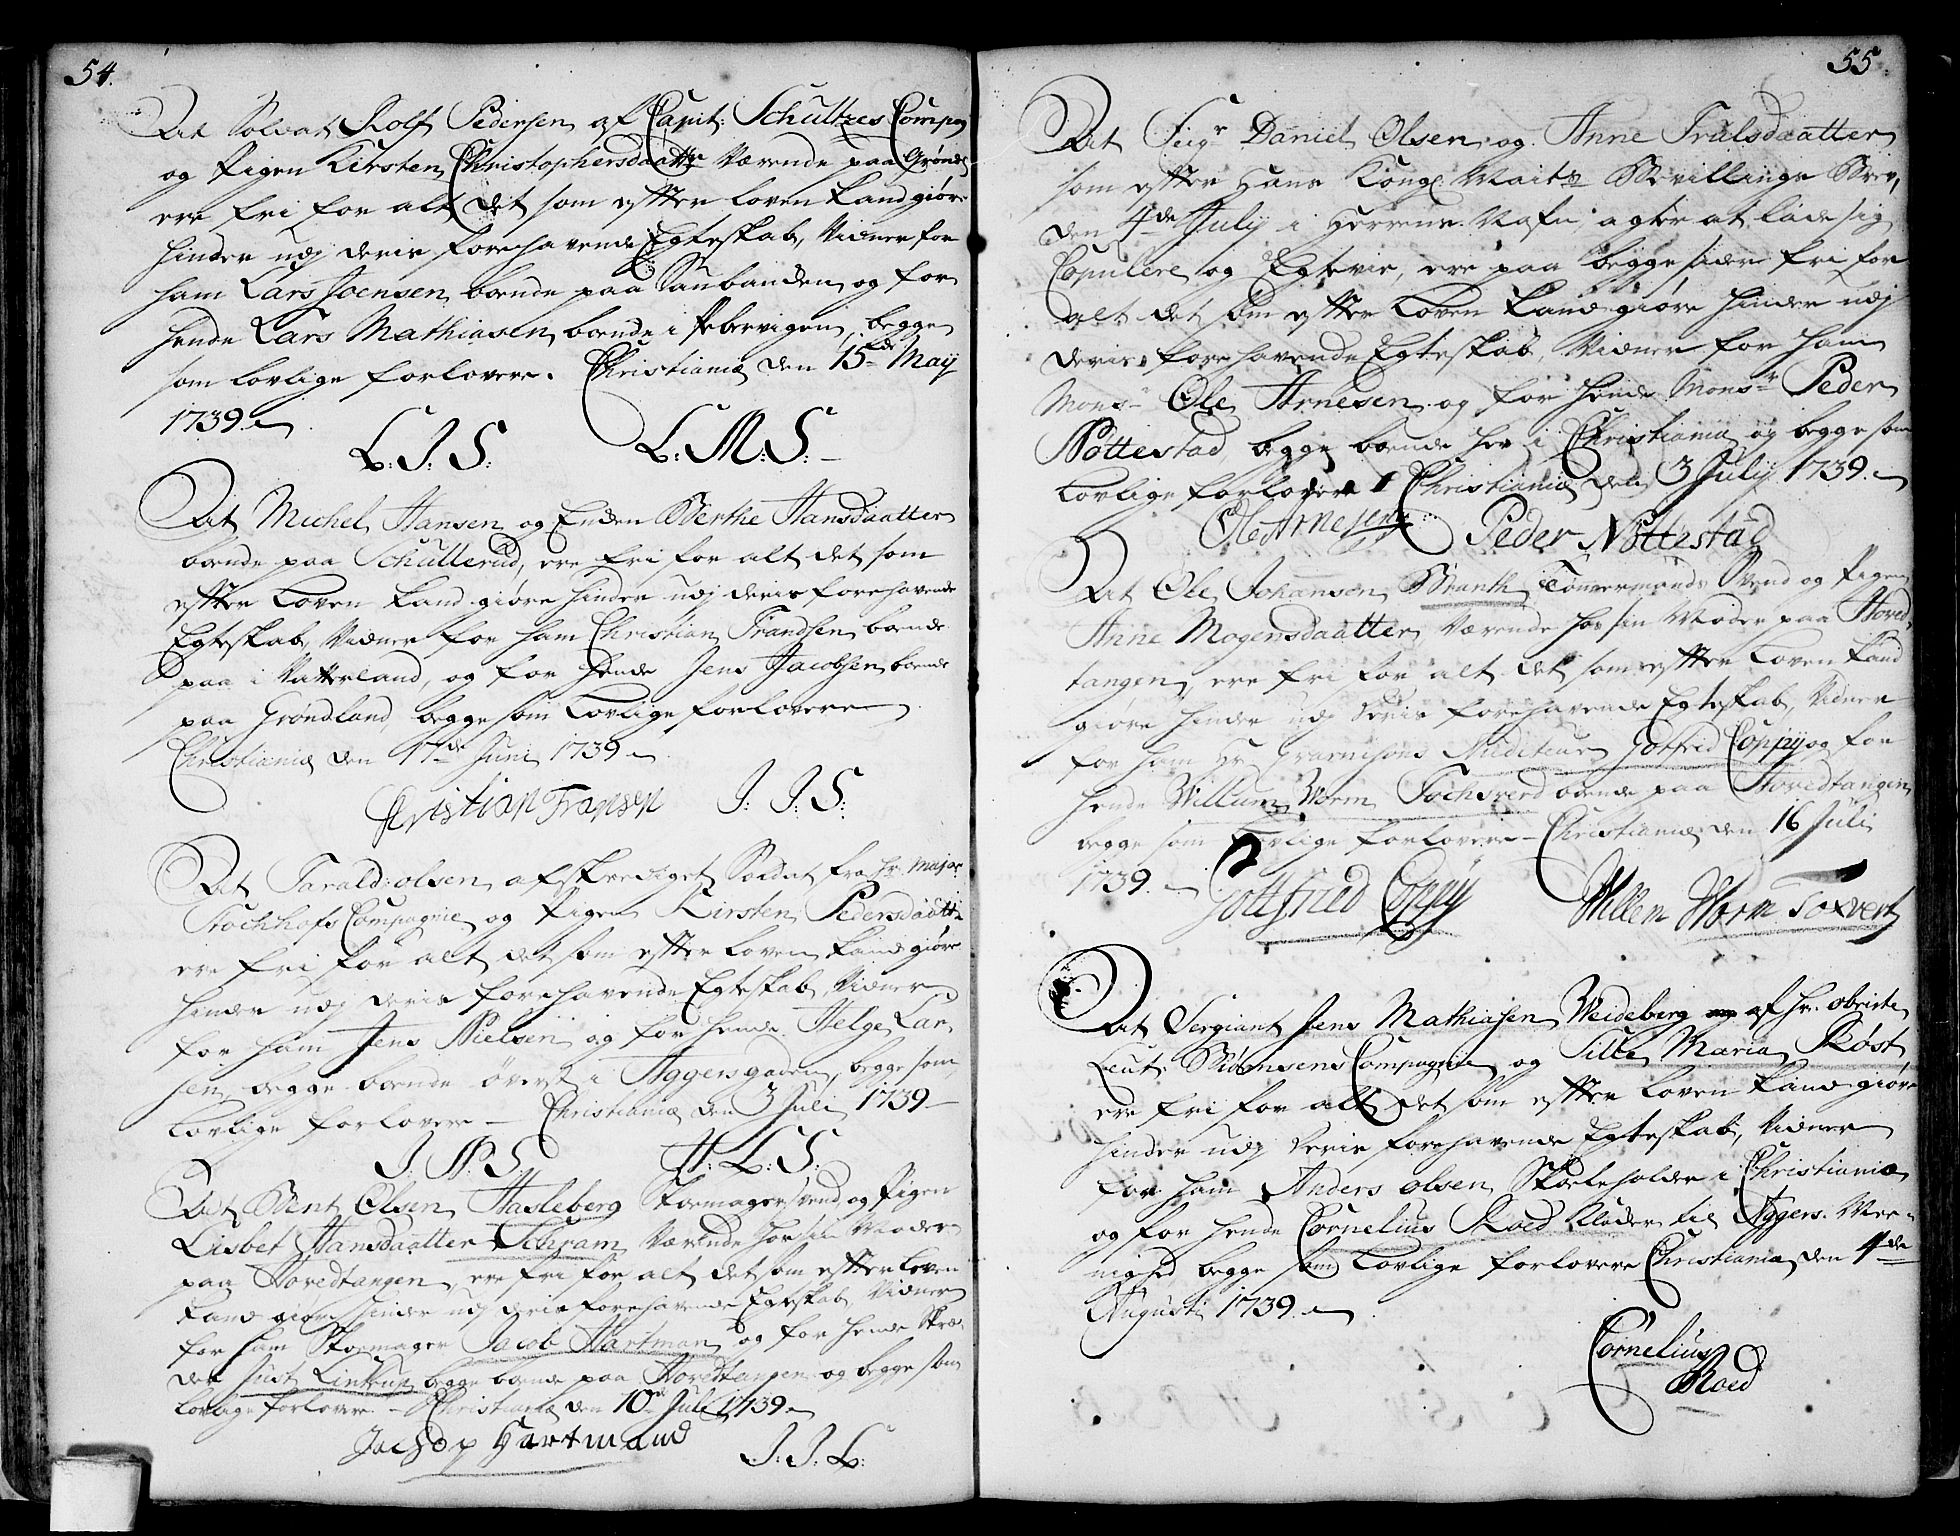 54.
At Soldat Rolf Pedersen af Capit: Schultzes Compag
og Pigen Kirsten Christophersdaatter Værende paa Grønd
ere fri for alt det som efter Loven kand giøre
hinder udj deris forehavende Egteskab, Vidner for
ham Lars Joensen boende paa Saubanden og for
hende Lars Mathiasen boende i Pebervigen, begge
som lovlige forlovere. Christiania den 15de Maij
1739.
L: J: S: L: M: S:
At Michel Hansen og Enken Berthe Hansdaatter
boende paa Schullerud, ere fri for alt det som
efter Loven kand giøre hinder udj deris forehavende
Egteskab, Vidner for ham Christian Frandsen boende
paa i Vatterland, og for hende Jens Jacobsen boende
paa Grøndland, begge som Lovlige forlovere
Christiania den 17de Juni 1739
Cristian Fransen J: J: S:
At Tarald olsen afskediget Soldat fra Hr: Major
Stochhofs Compagnie og Pigen Kirsten Pedersdaatter
ere fri for alt det som efter Loven kand giøre
hinder udj deris forehavende Egteskab, Vidner
for ham Jens Nielsen og for hende Helge Lar
sen begge boende øverst i Aggersgaden, begge som
Lovlige forlovere — Christiania den 3 Juli 1739
J: N: S. H: L: S:
At Bent Olsen Hasleberg Skomagersvend og Pigen
Lisbet Hansdaatter Schram Værende hos sin Moder
paa Hovedtangen, ere fri for alt det som efter Loven
kand giøre hinder udj deris forehavende Egteskab, Vidner
for ham Skomager Jacob Hartman og for hende Skræ
der Just Lintrup begge boende paa Hovedtangen og begge som
Lovlige forlovere — Christiania den 10de Juli 1739
Jachop Hartmand J: J: L:
55.
At Sigr Daniel Olsen og Anne Trulsdaatter
som efter Hans Kongl: Maits Bevillings Brev,
den 4de Julij i Herrens Nafn agter at lade sig
Copulere og Egtevie, ere paa begge sider fri for
alt det som efter Loven kand giøre hinder udj
deris forehavende Egteskab, Vidner for ham
Monsr Ole Arnesen og for hende Monsr Peder
Nottestad begge boende her i Christiania og begge som
Lovlige forlovere Christiania den 3 Julij 1739.
Ole Arnesen Peder Nottestad
At Ole Johansen Branth Tømmermands Svend og Pigen
Anne Mogensdaatter Værende hos sin Moder paa Hoved
tangen, ere fri for alt det som efter Loven kand
giøre hinder udj deris forehavende Egteskab, Vidner
for ham Hr Guarnisons Auditeur Gotfrid Coppij og for
hende Willum Worm Tochsverd boende paa Hovedtangen
begge som Lovlige forlovere — Christiania den 16 Juli
1739.
Gottfried Coppy Willem Worm Toxverd
At Sergiant Jens Mathiasen Weideberg af Hr. obriste
Leut: Biørnsens Compagnie og Sille Maria Røst
ere fri for alt det som efter Loven kand giøre
hinder udj deris forehavende Egteskab, Vidner
for ham Anders olsen Skoleholder i Christiania
og for hende Cornelius Roed Klocker til Aggers. Me=
nighed begge som Lovlige forlovere Christiania den 4de
Augusti 1739.
Cornelius
Roed